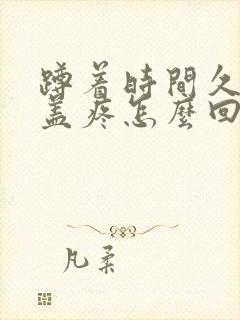 蹲着時間久
盖疼怎麼回
凡柔